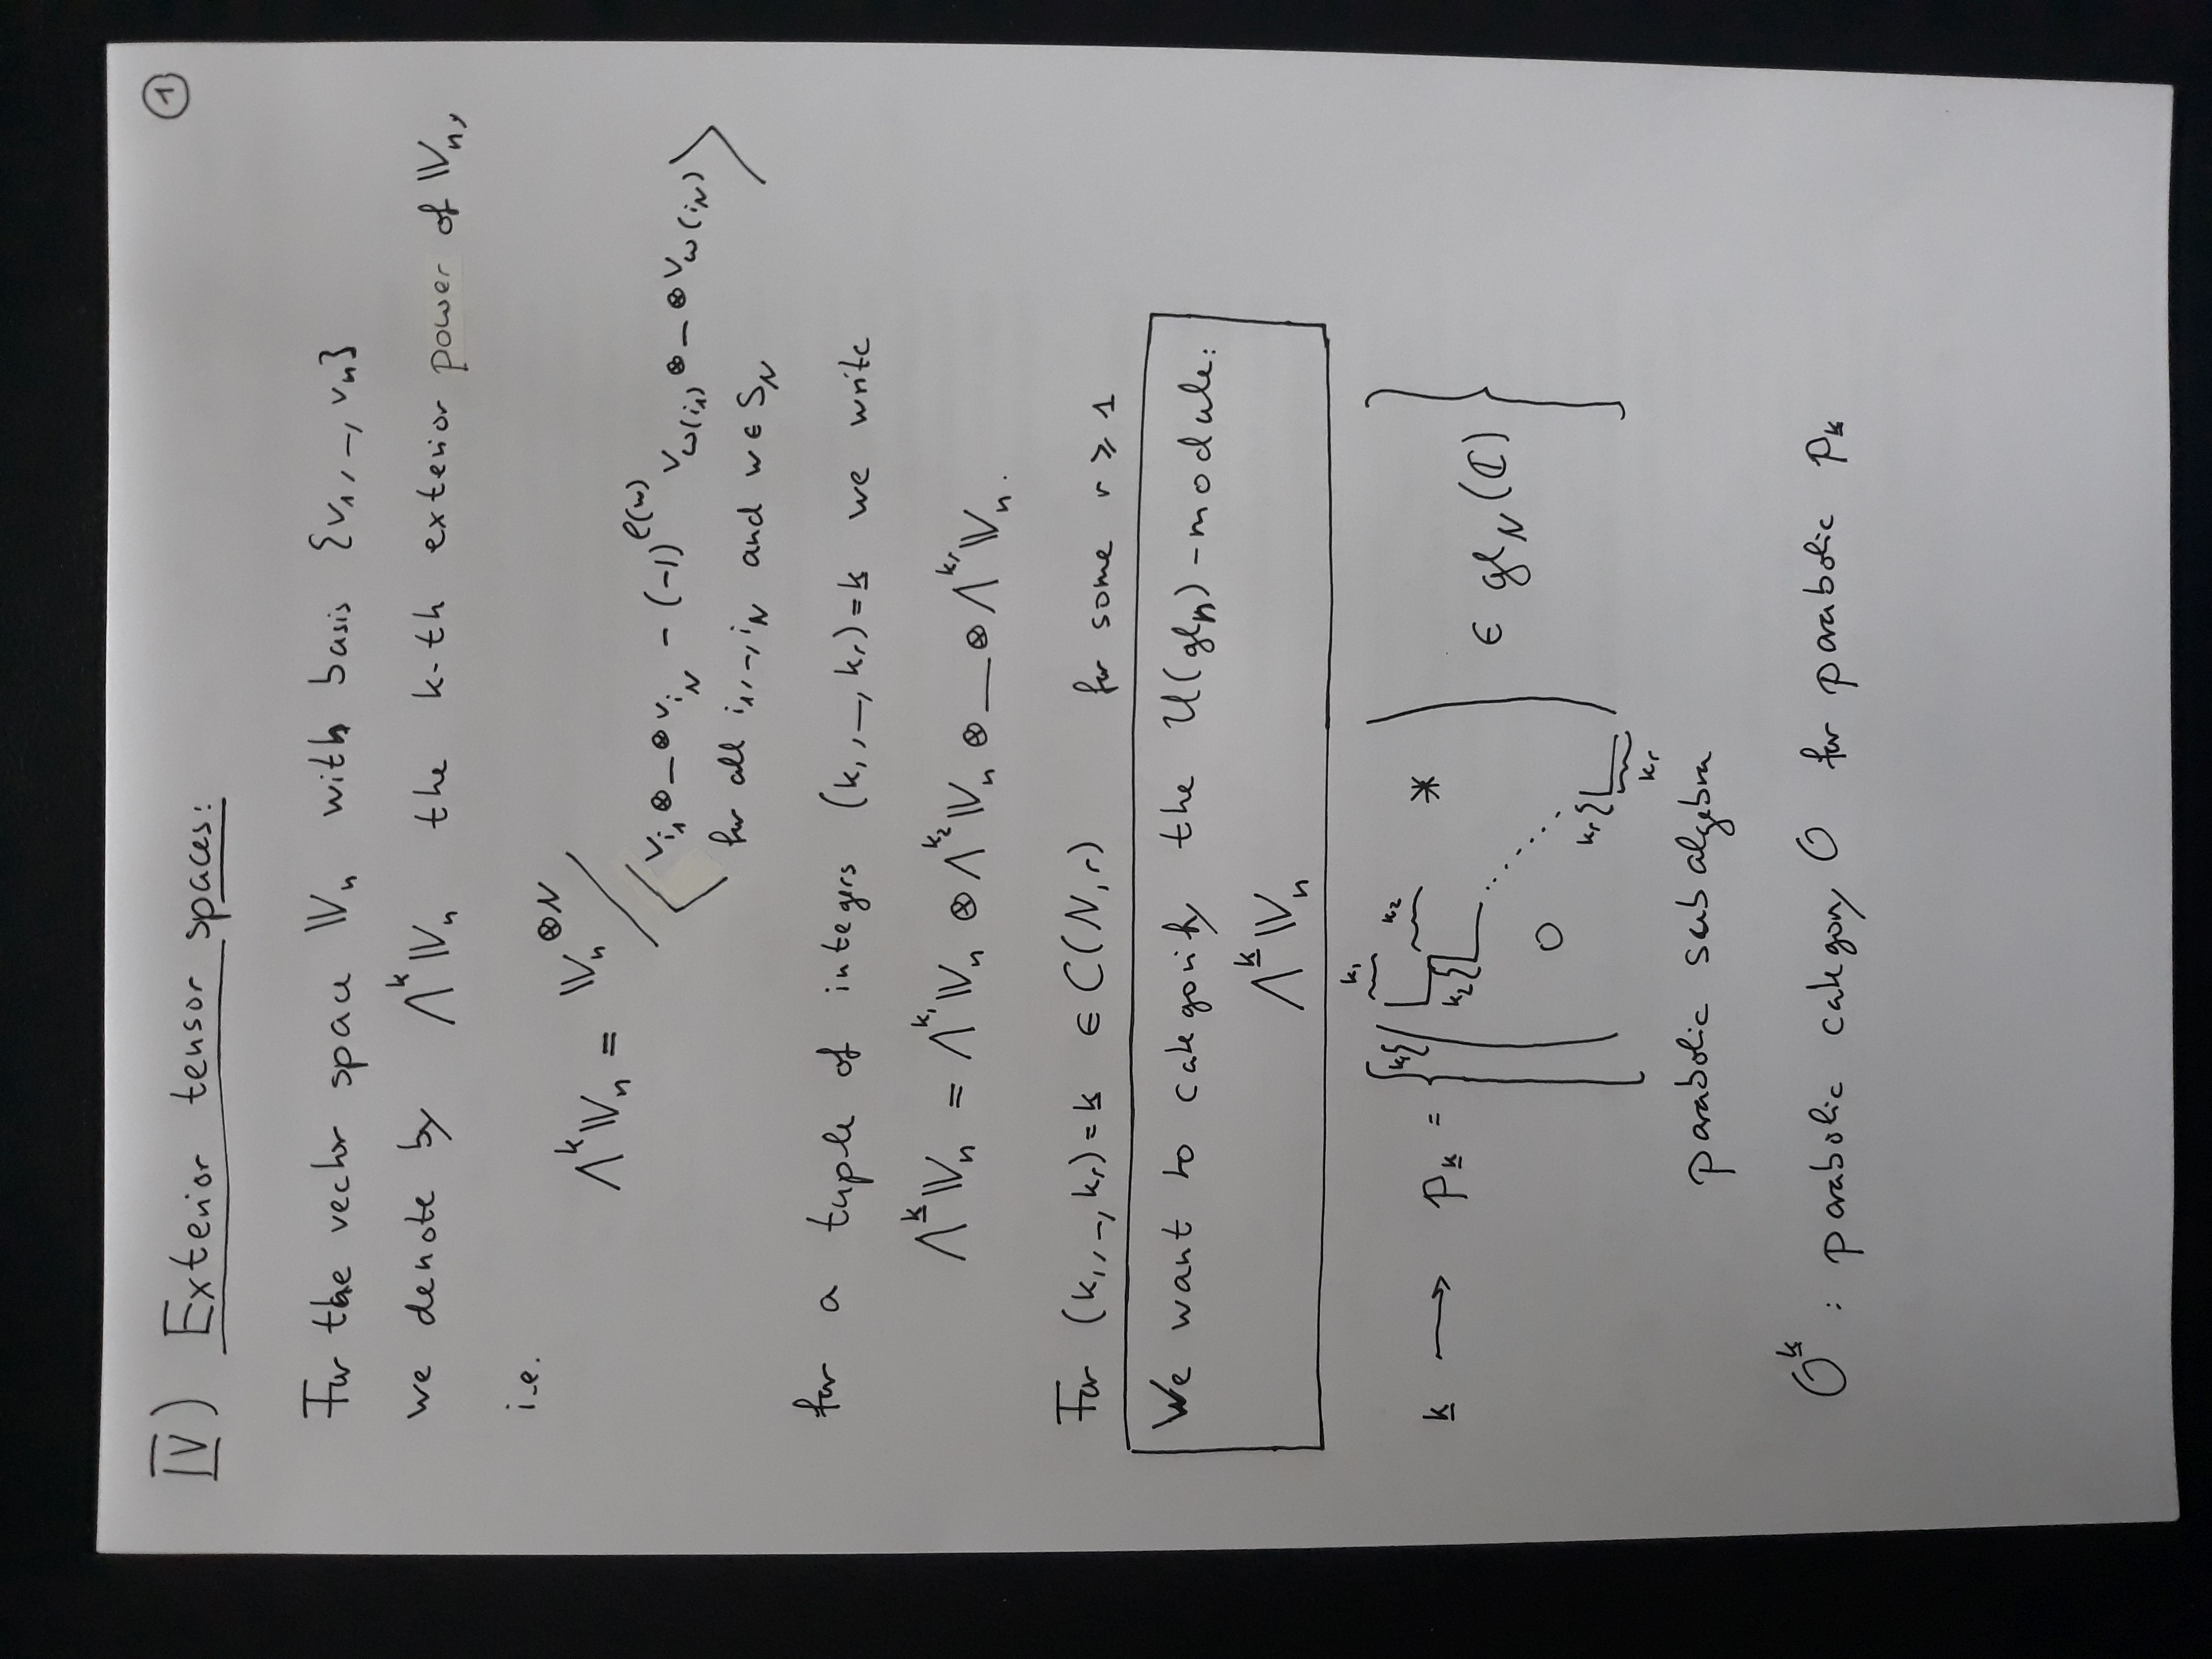 ①
IV) Exterior tensor spaces:
For the vector space 𝕍ₙ with basis {v₁, –, vₙ}
we denote by Λ^k 𝕍ₙ the k-th exterior power of 𝕍ₙ,
i.e.
Λ^k 𝕍ₙ = 𝕍ₙ^{⊗N} / ⟨ v_{i₁} ⊗ – ⊗ v_{i_N} - (-1)^{ℓ(w)} v_{w(i₁)} ⊗ – ⊗ v_{w(i_N)}
for all i₁, –, i_N and w ∈ S_N ⟩
for a tuple of integers (k₁, –, k_r) = k̲ we write
Λ^k̲ 𝕍ₙ = Λ^{k₁} 𝕍ₙ ⊗ Λ^{k₂} 𝕍ₙ ⊗ — ⊗ Λ^{k_r} 𝕍ₙ.
For (k₁, –, k_r) = k̲ ∈ C(N, r) for some r ⩾ 1
We want to categorify the U(glₙ) - module:
Λ^k̲ 𝕍ₙ
k̲ ⟶ p_k̲ = { k₁{ ( k₁ k₂ k₂{ * 0 k_r{ k_r ) ∈ gl_N(ℂ) }
parabolic subalgebra
O^k̲ : parabolic category O for parabolic p_k̲